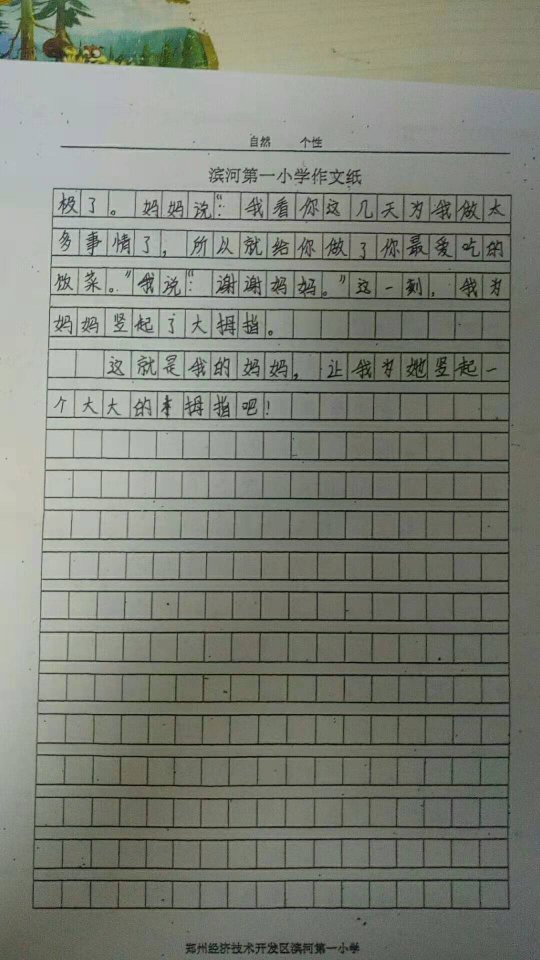 自然 个性
滨河第一小学作文纸
极了。妈妈说:“我看你这几天为我做太
多事情了,所以就给你做了你最爱吃的
饭菜。”我说:“谢谢妈妈。”这一刻,我为
妈妈竖起了大拇指。
这就是我的妈妈,让我为她竖起一
个大大的拇指吧!
郑州经济技术开发区滨河第一小学